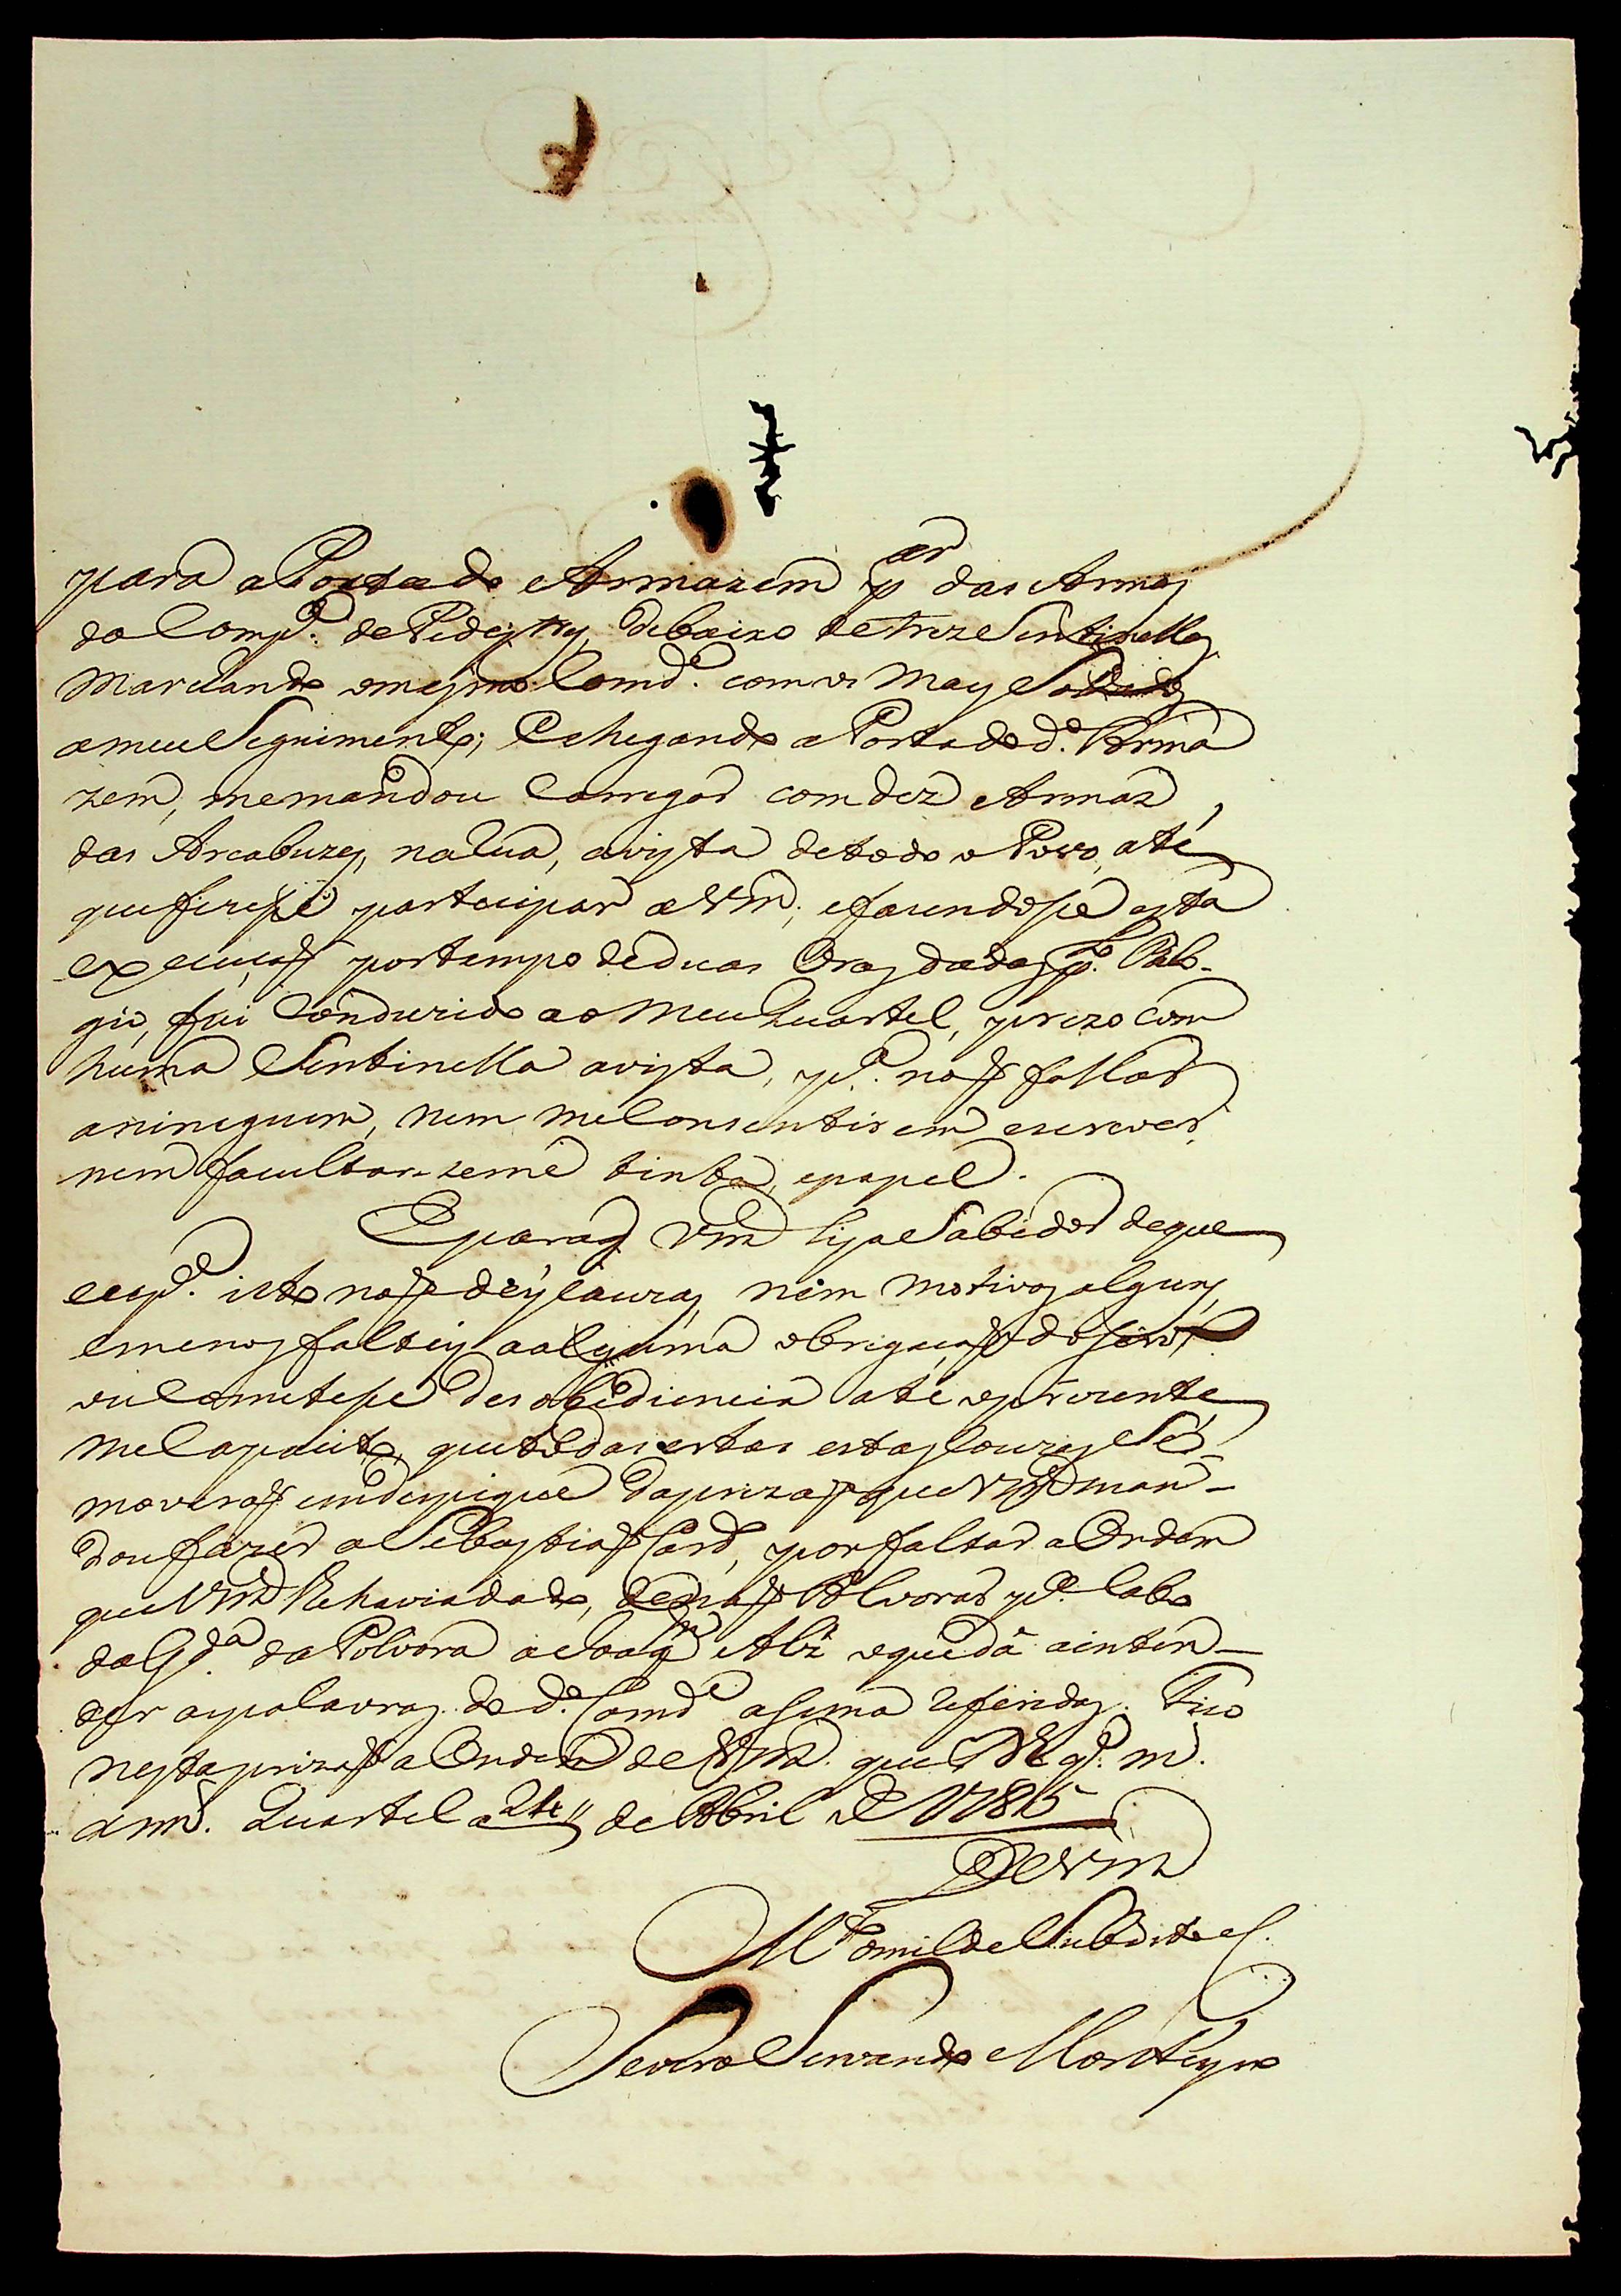 para a Porta do Armazem p.ar das Armas
da Comp.ª de Pedestres, debaixo de trez Sentinellas
Marchando omesmo Comd.e com os Mays Soldados
ameu Seguimento; Echegando a Porta do d.º Arma
zem, memandou Carregar com dez Armas,
das Arcabuzes, na lua, avista detodo o Povo, até
quefizesse partecipar a Vm.; efazendosse esta
execuçaõ portempo deduas Oras dadas p.º
fui Conduzido ao Meu Quartel, prezo com
huma Sentinella avista, p.ª naõ fallar
aninguem, nem meConsentirem escrever,
nem facultarseme tinta, epapel.
Eparaq Vm Sija Sabedor deque
eup.ª isto naõ dey cauzas, nem Motivos alguns,
emenos faltey aalguma obrigaçaõ do
ou Cometesse desobidiencia até oprezente
meCapacito, quetodas estas couzas Se
moveraõ emdespique daprizaõ que Vm man-
dou fazer a Sebastiaõ Card.º, porfaltar a Ordem
que Vm lhe haviadado, p.ª Cabo
da G.da da Polvora a Joaq.m Alz oquedá ainten-
der aspalavras do d.º Comd.e asima referidas. Fico
nestaprizaõ a Ordem de Vm. que D.s g.e m.
ann.s Quartel a 24 de Abril de 1785
De Vm
M.to omilde Subdito e C.
Severo Servando Monteyro